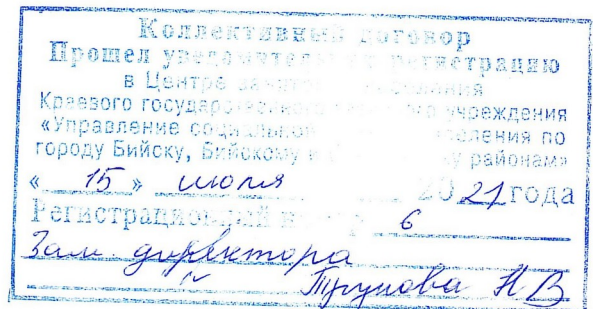 Коллективный договор
Прошел уведомительную регистрацию
в Центре занятости населения
Краевого государственного казенного учреждения
«Управление социальной защиты населения по
городу Бийску, Бийскому и районам»
« 15 » июля 2021 года
Регистрационный номер 6
Зам. директора
Н В